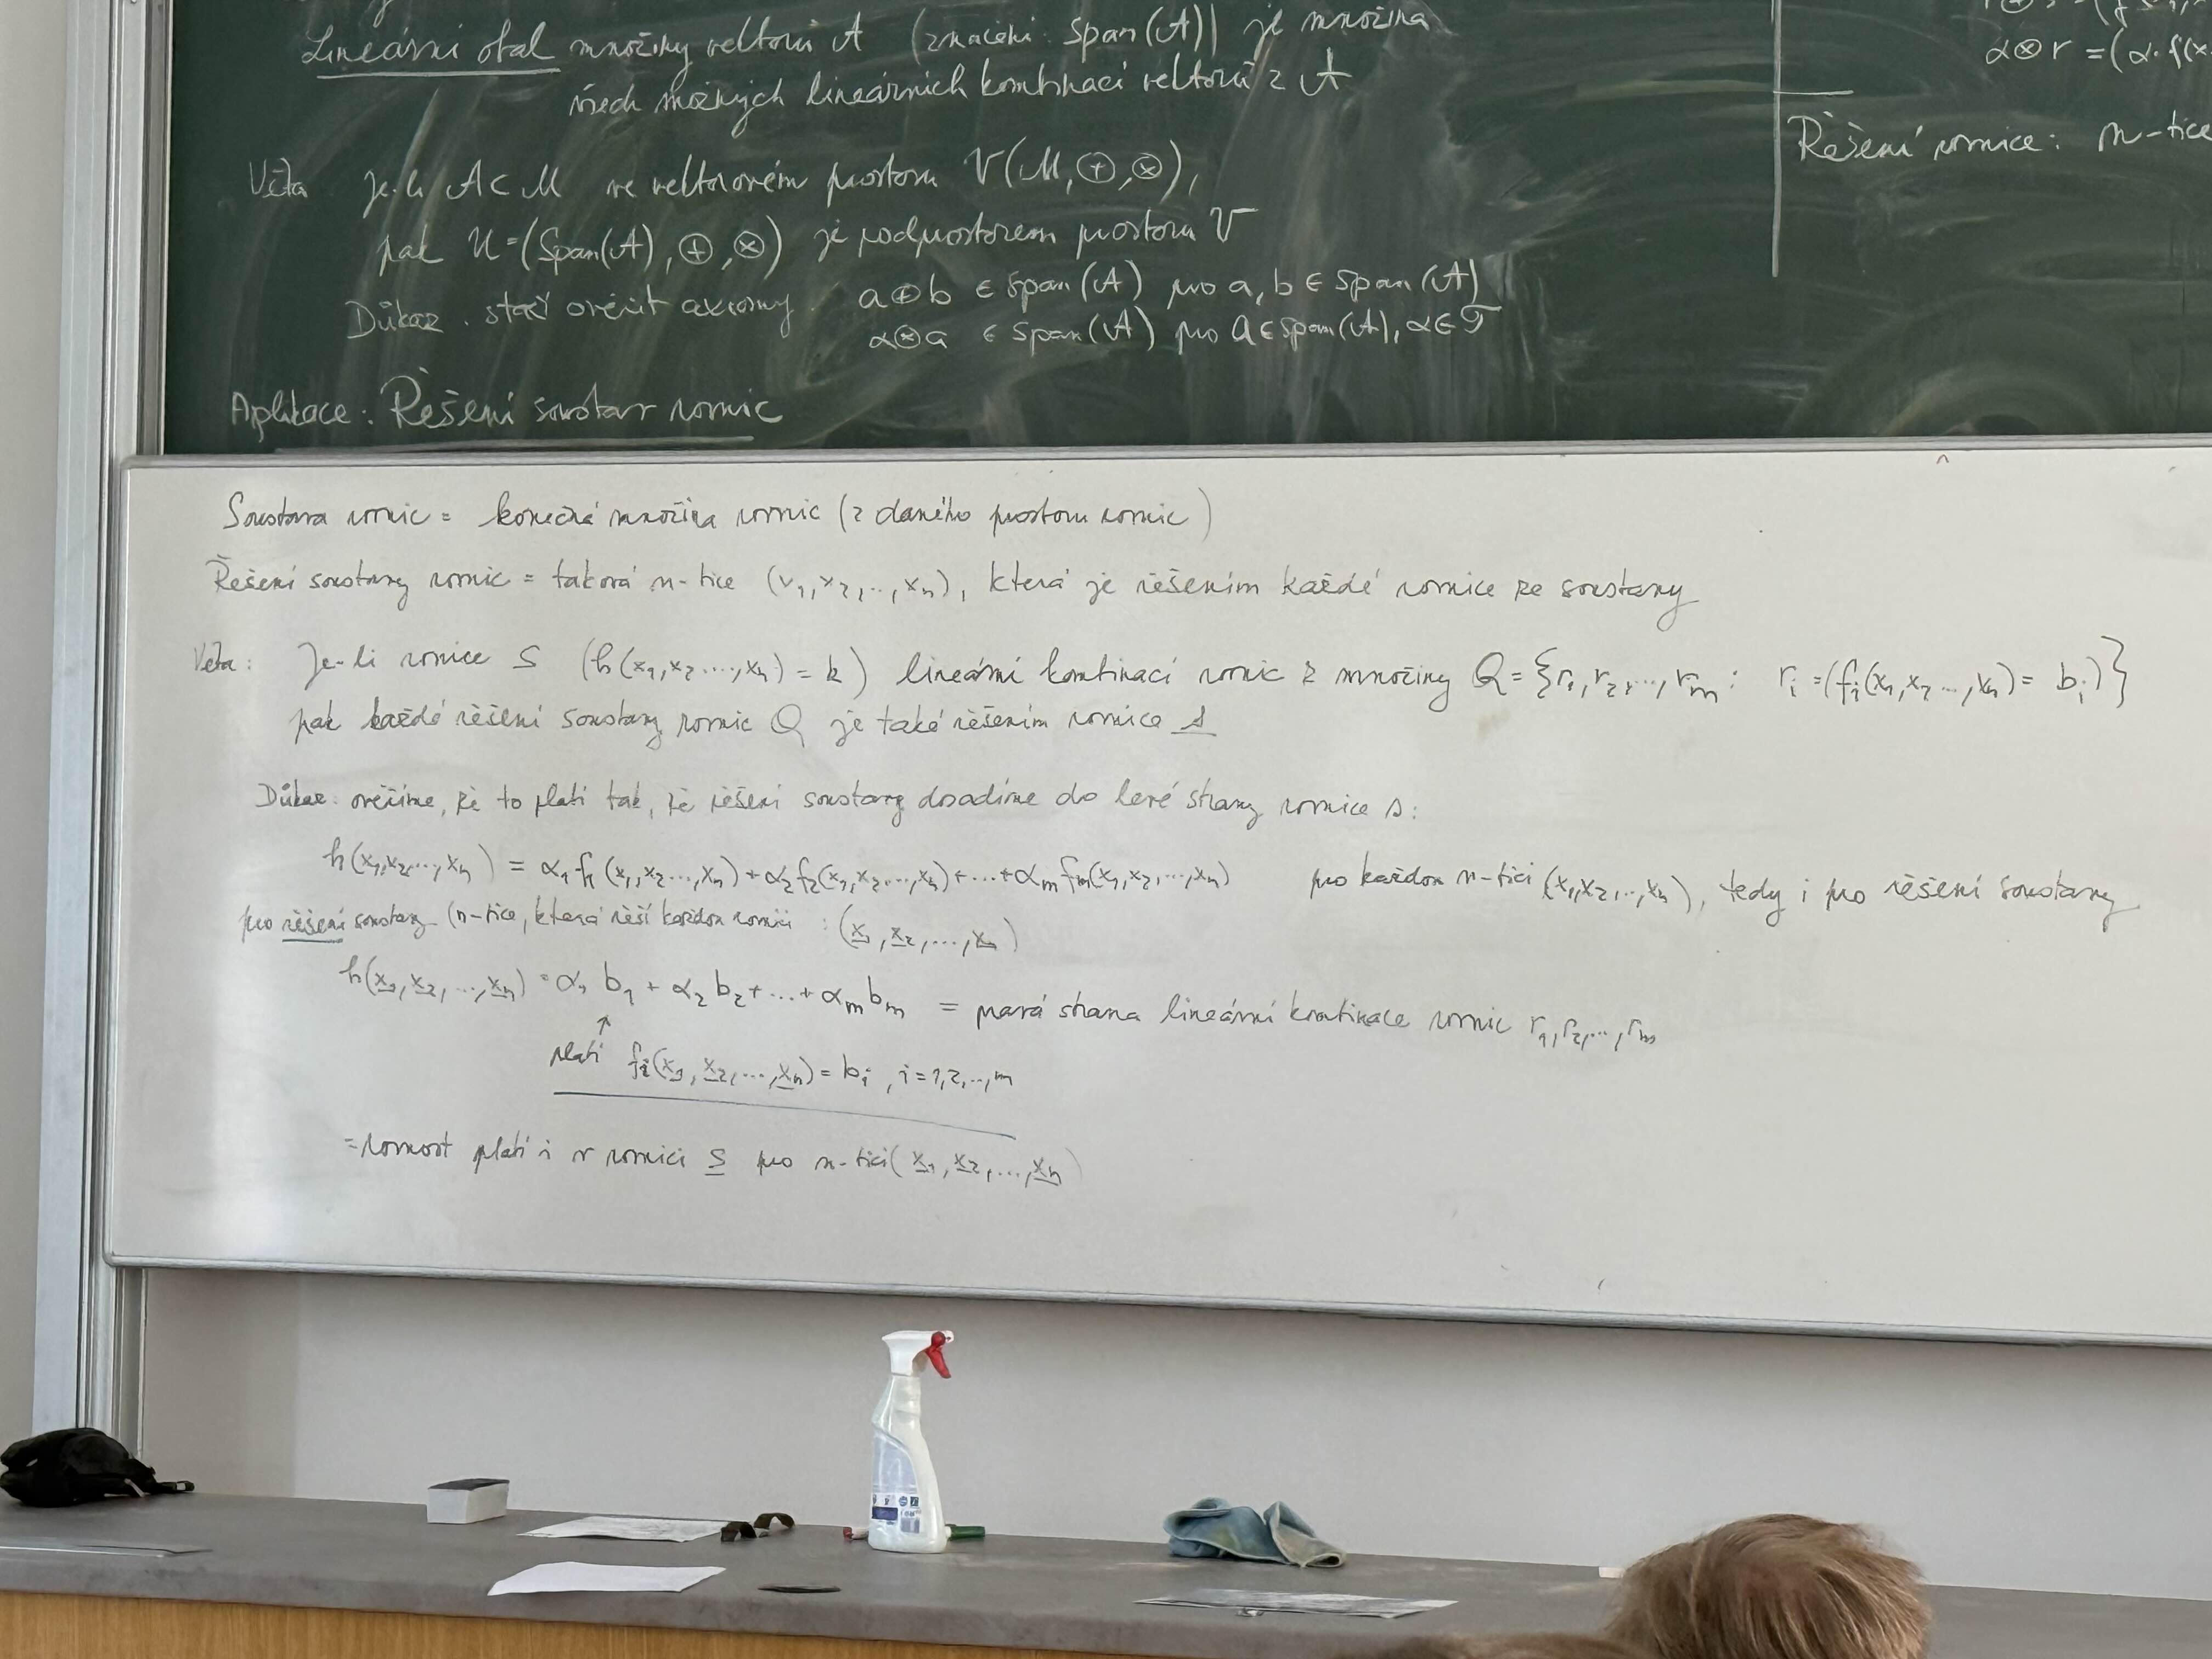 Lineární obal množiny vektorů A (značení: Span(A)) je množina
všech možných lineárních kombinací vektorů z A
Věta Je-li A ⊂ M ve vektorovém prostoru V(M, ⊕, ⊗),
pak U = (Span(A), ⊕, ⊗) je podprostorem prostoru V
Důkaz. stačí ověřit axiomy. a ⊕ b ∈ Span(A) pro a, b ∈ Span(A)
α ⊗ a ∈ Span(A) pro a ∈ Span(A), α ∈ T
Aplikace: Řešení soustav rovnic
α ⊗ r = (α·f(x
Řešení rovnice: n-tice
Soustava rovnic = konečná množina rovnic (z daného prostoru rovnic)
Řešení soustavy rovnic = taková n-tice (x₁, x₂, ..., xₙ), která je řešením každé rovnice ze soustavy
Věta: Je-li rovnice S (h(x₁, x₂ ..., xₙ) = k) lineární kombinací rovnic z množiny Q = {r₁, r₂, ..., rₘ : rᵢ = (fᵢ(x₁, x₂ ..., xₙ) = bᵢ)}
pak každé řešení soustavy rovnic Q je také řešením rovnice s
Důkaz: ověříme, že to platí tak, že řešení soustavy dosadíme do levé strany rovnice s:
h(x₁, x₂, ..., xₙ) = α₁f₁(x₁, x₂ ..., xₙ) + α₂f₂(x₁, x₂, ..., xₙ) + ... + αₘfₘ(x₁, x₂, ..., xₙ) pro každou n-tici (x₁, x₂, ..., xₙ), tedy i pro řešení soustavy
pro řešení soustavy (n-tice, která řeší každou rovnici : (x̲₁, x̲₂, ..., x̲ₙ)
h(x̲₁, x̲₂, ..., x̲ₙ) = α₁ b₁ + α₂ b₂ + ... + αₘ bₘ = pravá strana lineární kombinace rovnic r₁, r₂, ..., rₘ
↑
platí fᵢ(x̲₁, x̲₂, ..., x̲ₙ) = bᵢ, i = 1, 2, .., m
= rovnost platí i v rovnici S pro n-tici (x̲₁, x̲₂, ..., x̲ₙ)